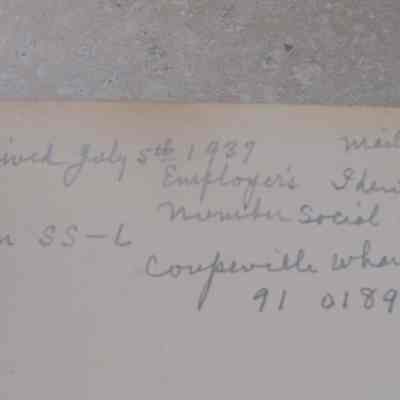 ived July 5th 1937 mail
Employer's Iden
Number Social
n SS-L
Coupeville Whar
91 0189